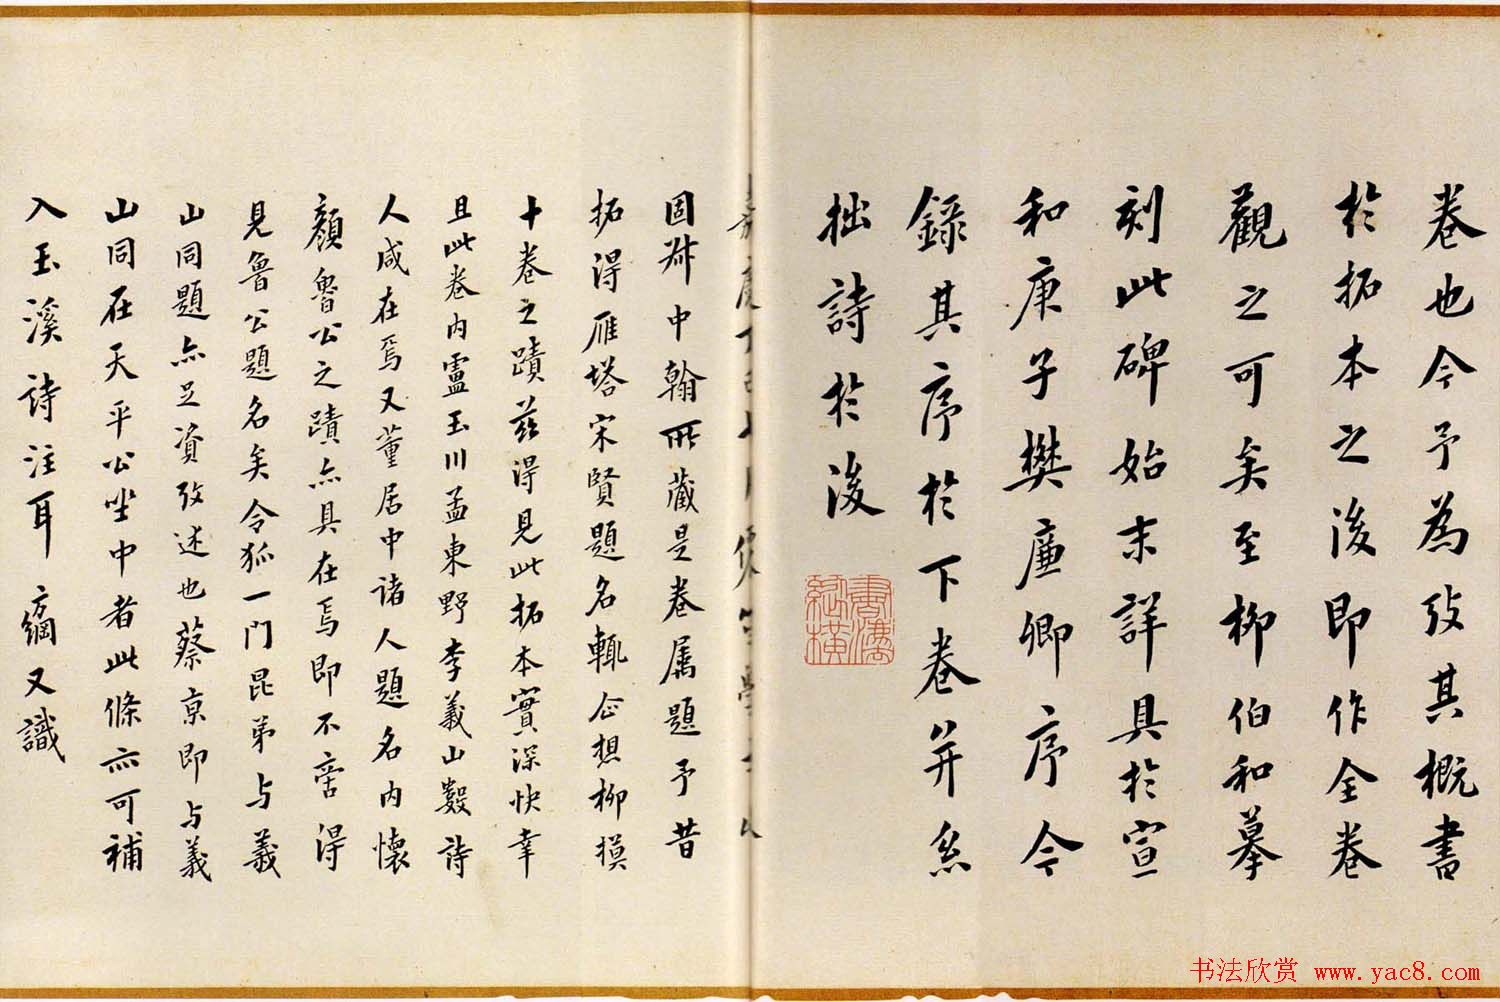 卷也今予為攷其概書
於拓本之後即作全卷
觀之可矣至柳伯和摹
刻此碑始末詳具於宣
和庚子樊廉卿序今
錄其序於下卷并系
拙詩於後
嘉慶丁巳
固叔中翰所藏是卷屬題予昔
拓得雁塔宋賢題名輒企想柳摸
十卷之蹟茲得見此拓本實深快幸
且此卷内盧玉川孟東野李義山數詩
人咸在焉又董居中諸人題名内懷
顏魯公之蹟亦具在焉即不啻得
見魯公題名矣令狐一門昆弟与義
山同題亦足資攷述也蔡京即与義
山同在天平公坐中者此條亦可補
入玉溪詩注耳 方綱又識
书法欣赏 www.yac8.com